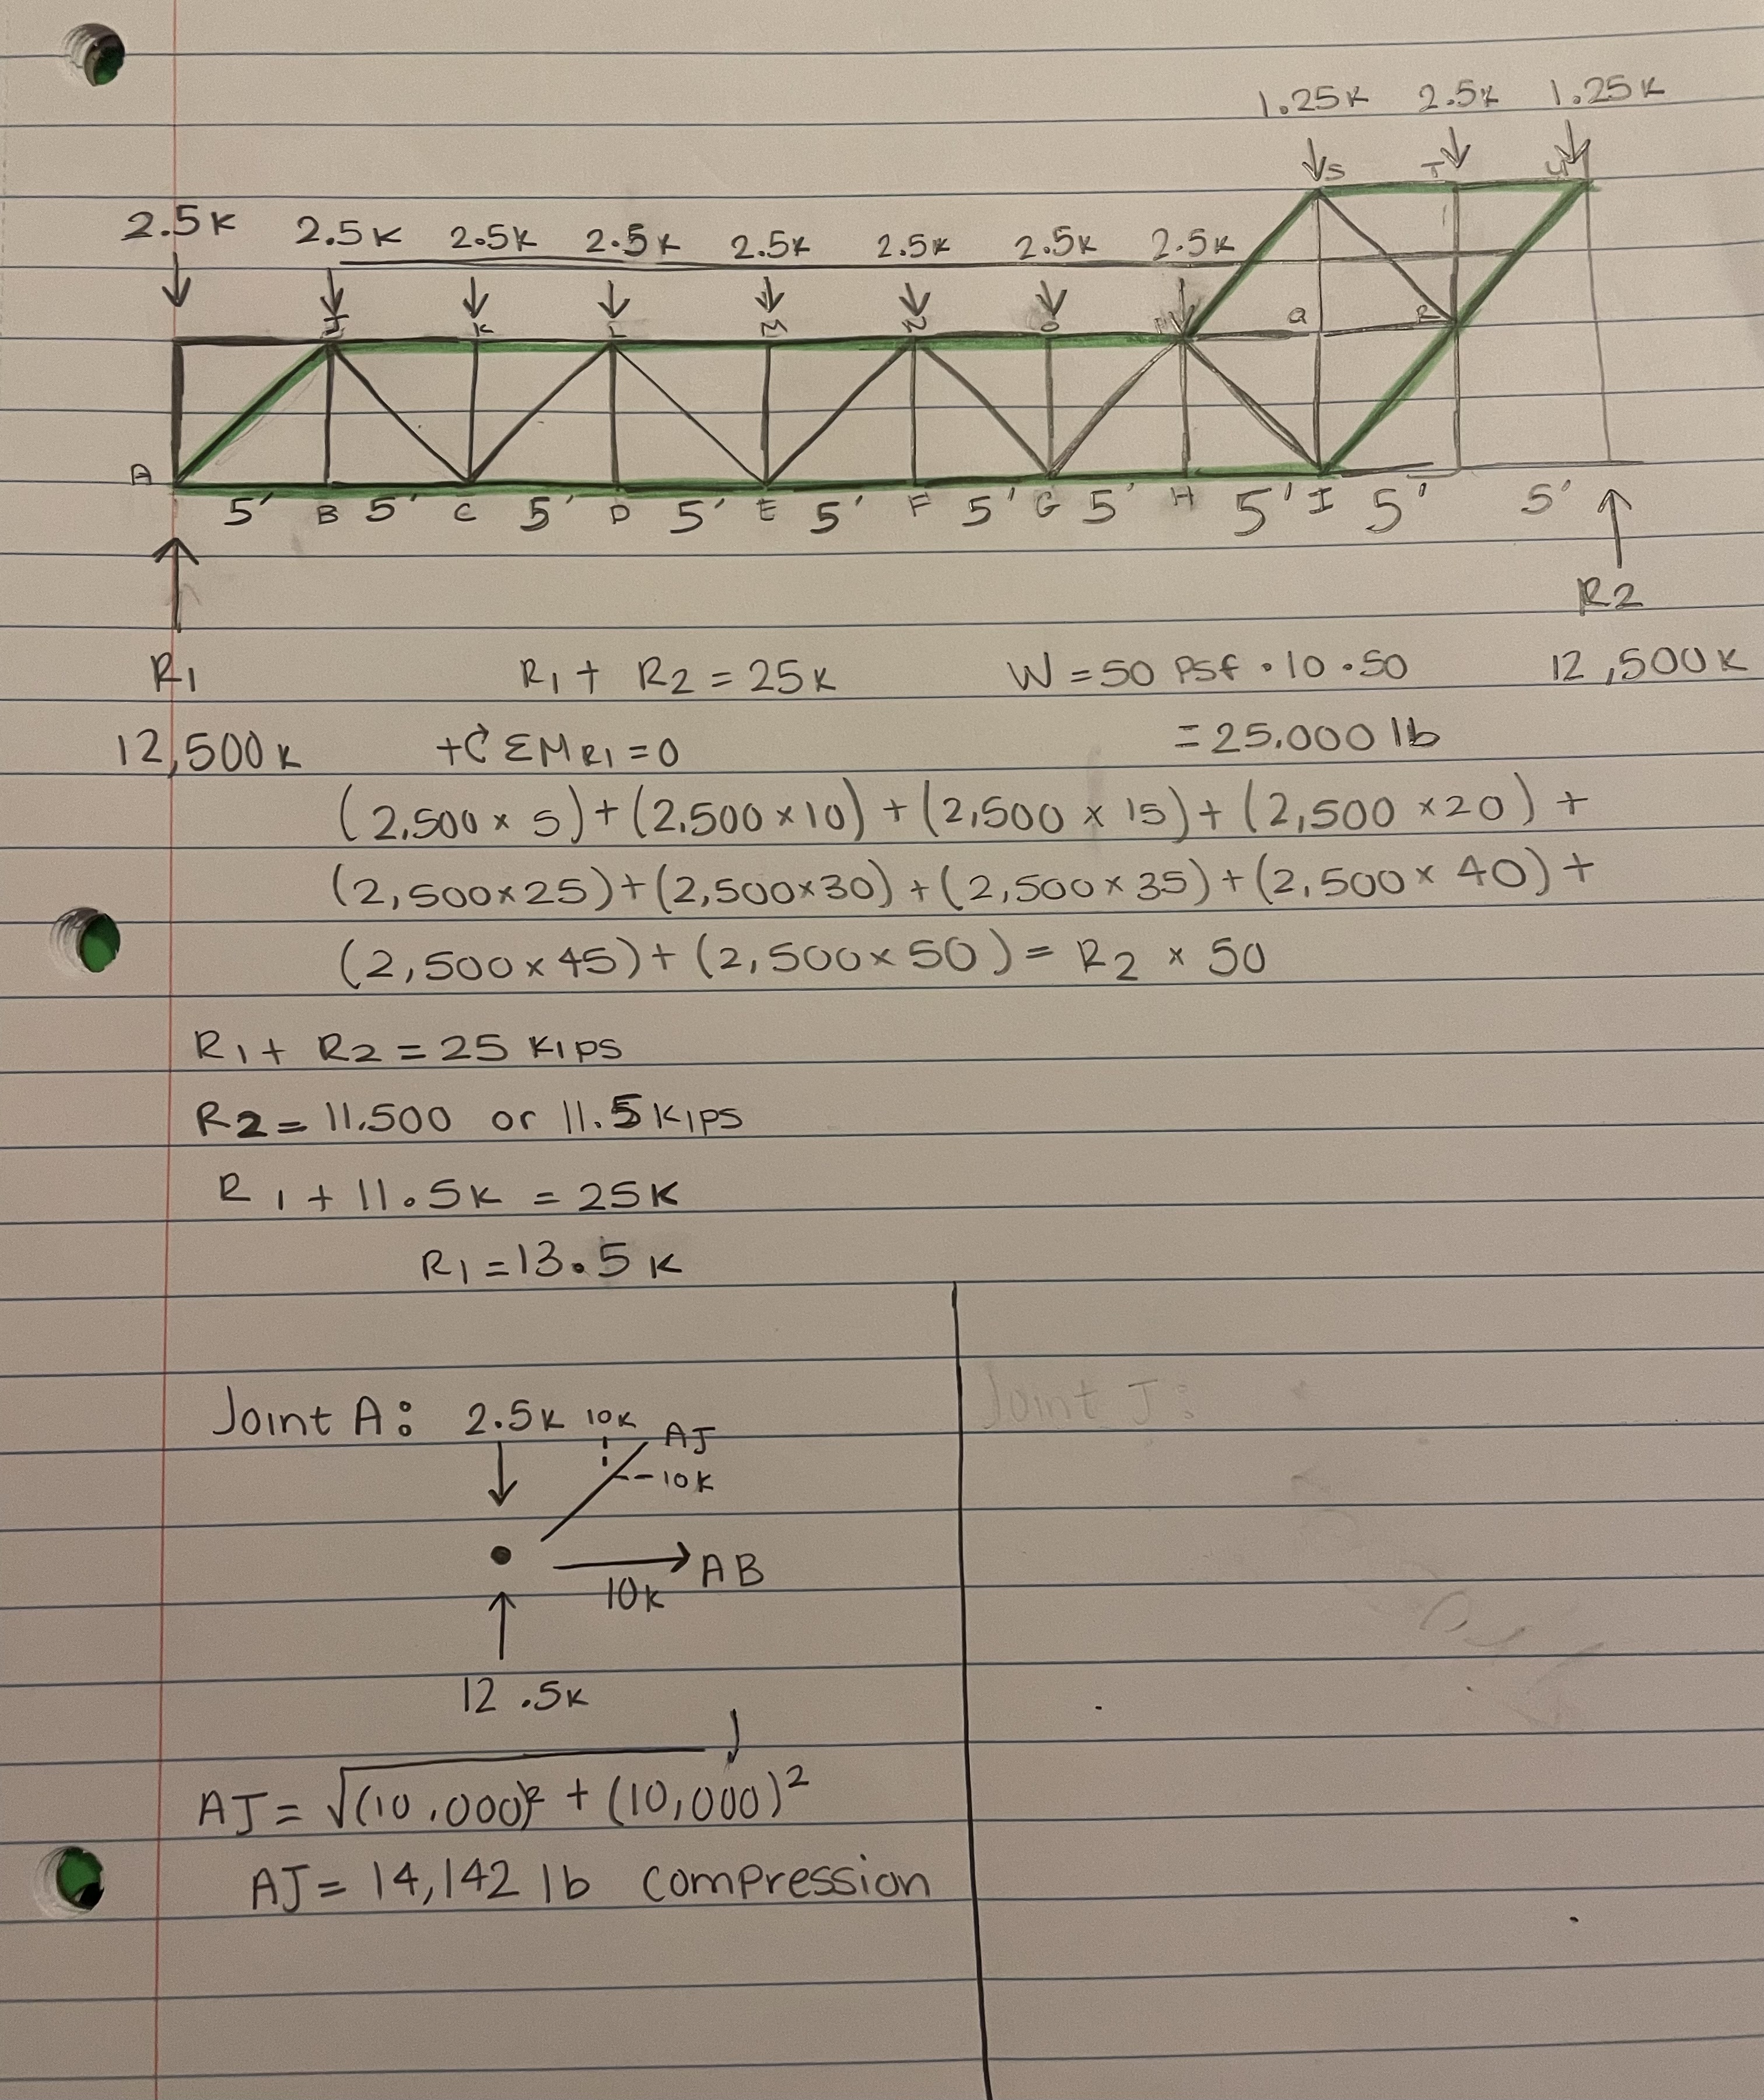 1.25K 2.5K 1.25K
S T U
2.5K 2.5K 2.5K 2.5K 2.5K 2.5K 2.5K 2.5K
J K L M N O Q R
A 5' B 5' C 5' D 5' E 5' F 5' G 5' H 5' I 5' 5'
R2
R1 R1 + R2 = 25K W = 50 PSf · 10 · 50 12,500K
12,500K +↻ ΣM R1 = 0 = 25.000 lb
(2,500 × 5) + (2,500 × 10) + (2,500 × 15) + (2,500 × 20) +
(2,500 × 25) + (2,500 × 30) + (2,500 × 35) + (2,500 × 40) +
(2,500 × 45) + (2,500 × 50) = R2 × 50
R1 + R2 = 25 KIPS
R2 = 11.500 or 11.5 KIPS
R1 + 11.5K = 25K
R1 = 13.5K
Joint A: 2.5K 10K AJ Joint J:
10K
AB
10K
12.5K
AJ = √(10,000)² + (10,000)²
AJ = 14,142 lb compression